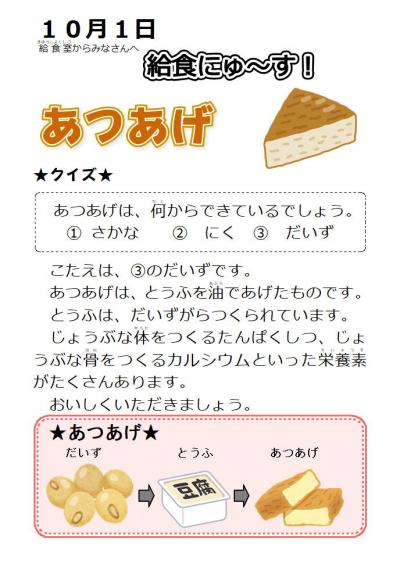 １０月１日
給食室からみなさんへ
給食にゅ～す！
あつあげ
★クイズ★
あつあげは、何からできているでしょう。
① さかな　② にく　③ だいず
こたえは、③のだいずです。
あつあげは、とうふを油であげたものです。
とうふは、だいずがらつくられています。
じょうぶな体をつくるたんぱくしつ、じょ
うぶな骨をつくるカルシウムといった栄養素
がたくさんあります。
おいしくいただきましょう。
★あつあげ★
だいず　とうふ　あつあげ
豆腐